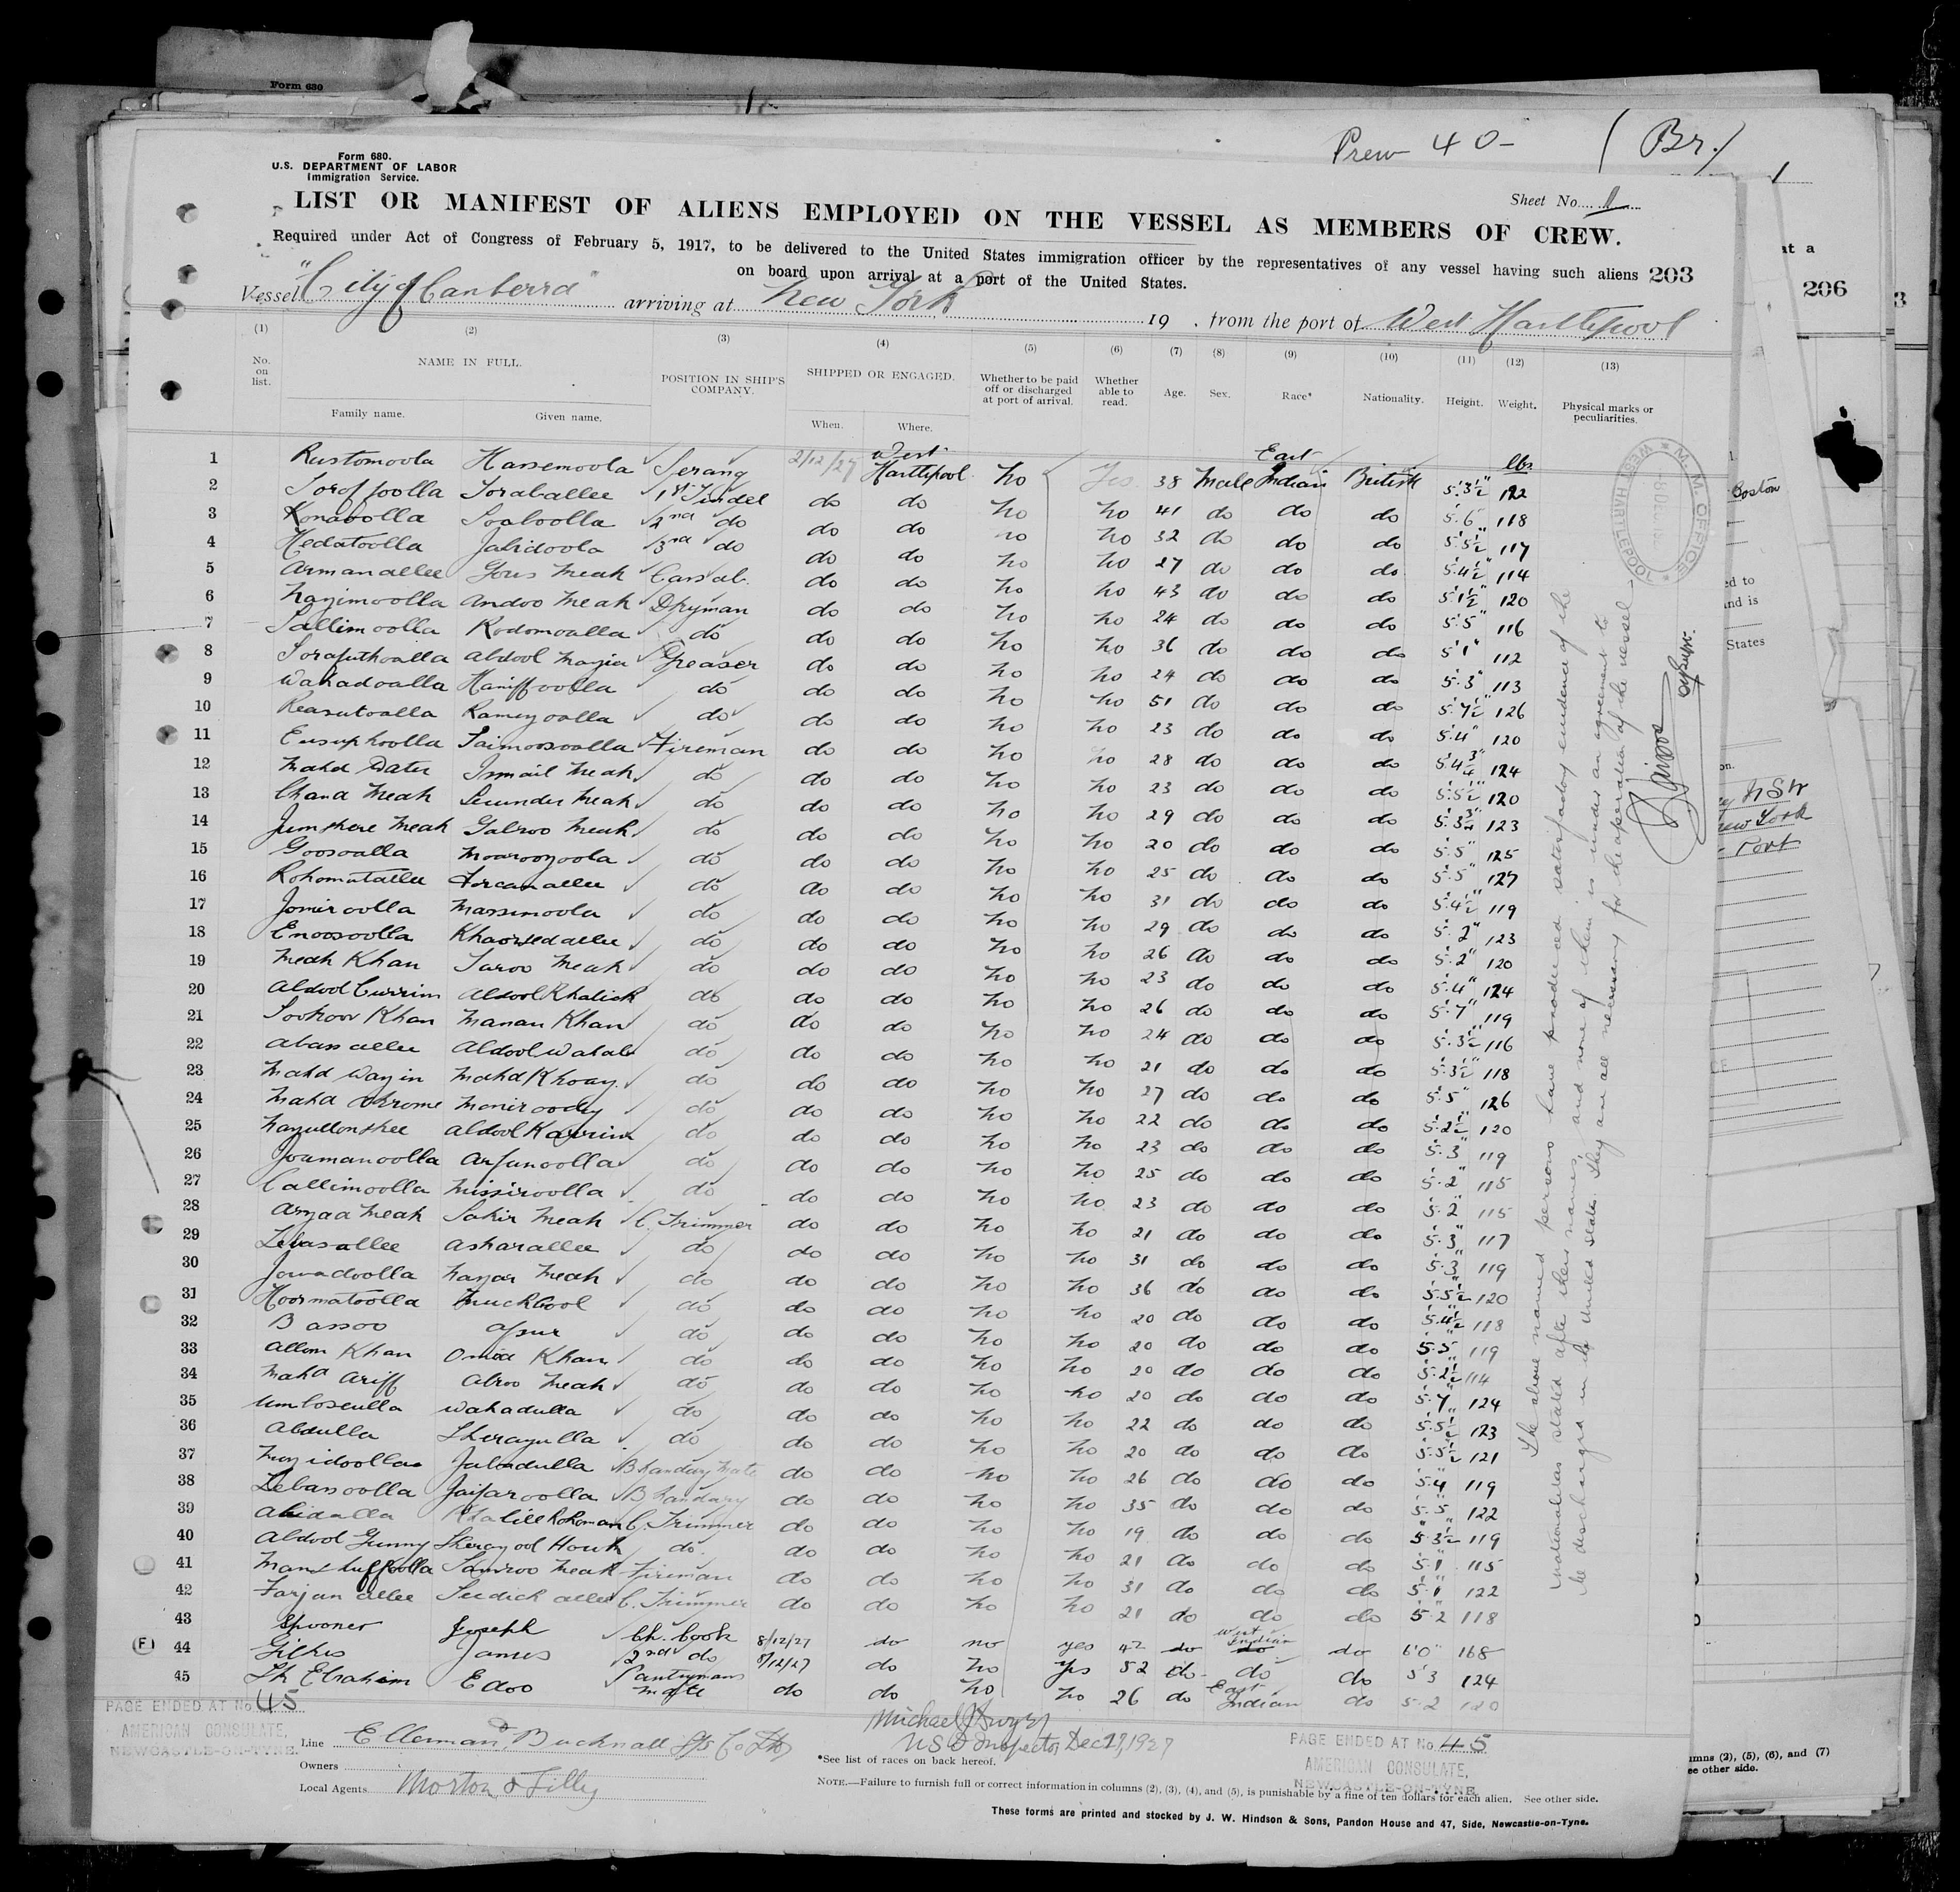 Form 680
Crew 40- (Br.)
Form 680.
U.S. DEPARTMENT OF LABOR
Immigration Service.
Sheet No. 11
LIST OR MANIFEST OF ALIENS EMPLOYED ON THE VESSEL AS MEMBERS OF CREW.
Required under Act of Congress of February 5, 1917, to be delivered to the United States immigration officer by the representatives of any vessel having such aliens 203
on board upon arrival at a port of the United States.
Vessel "City of Canberra" arriving at New York 19 . from the port of West Hartlepool
(1) (2) (3) (4) (5) (6) (7) (8) (9) (10) (11) (12) (13)
No. on list. NAME IN FULL. POSITION IN SHIP'S COMPANY. SHIPPED OR ENGAGED. Whether to be paid off or discharged at port of arrival. Whether able to read. Age. Sex. Race* Nationality. Height. Weight. Physical marks or peculiarities.
Family name. Given name. When. Where.
1 Rustomoola Hassemoola Serang 2/12/27 West Hartlepool No Yes 38 Male East Indian British 5'.3½" lbs 122
2 Toraballee 1st Tindel do do No No 41 do do do 5'.6" 118
3 Konaboolla 2nd do do do no No 32 do do do 5'.5½" 117
4 Hedatoolla Jabidoola 3rd do do do No No 27 do do do 5'.4½" 114
5 Armanallee Gous Meah Cassab. do do No No 43 do do do 5'.1½" 120
6 Nazimoolla Andoo Meah Dkyman do do No No 24 do do do 5'.5" 116
7 Sallimoolla Kodomoalla do do do No No 36 do do do 5'1" 112
8 Abdool Greaser do do No No 24 do do do 5'.3" 113
9 Wahadoalla Haniffoolla do do do No No 51 do do do 5'.7½" 126
10 Reasutoalla Ramezoalla do do do No No 23 do do do 5'.4" 120
11 Eusuphoolla Taimoosoalla Fireman do do No No 28 do do do 5'4¾" 124
12 Mahd Dater Ismail Meah do do do No No 23 do do do 5'.5½" 120
13 Chand Meah Secunder Meah do do do No No 29 do do do 123
14 Jumshere Meah Gabroo Meah do do do No No 20 do do do 5'.5" 125
15 Goosoalla Moaroozoola do do do No No 25 do do do 5'.5" 127
16 Rohomatallee Forcanallee do do do No No 31 do do do 5'.4½" 119
17 Jomiroolla Massimoola do do do No No 29 do do do 5'.2" 123
18 Enoosoolla Khaorsedallee do do do No No 26 do do do 5'.2" 120
19 Meah Khan Saroo Meah do do do No No 23 do do do 5'.4" 124
20 Abdool Currim Abdool Khalick do do do No No 26 do do do 5'.7" 119
21 Sookoor Khan Manan Khan do do do No No 24 do do do 5'.3½" 116
22 Abass allee Abdool Wahab do do do No No 21 do do do 5'.3½" 118
23 Mahd Wazin Mahd do do do No No 27 do do do 5'.5" 126
24 Mahd Monirooddy do do do No No 22 do do do 5'.2½" 120
25 Abdool Karrim do do do No No 23 do do do 5'.3" 119
26 Joamanoolla Arfanoolla do do do No No 25 do do do 5'.2" 115
27 Callimoolla Missiroolla do do do No No 23 do do do 5'.2" 115
28 Amjad Meah Sakir Meah C. Trimmer do do No No 21 do do do 5'.3" 117
29 Lebasallee Asharallee do do do No No 31 do do do 5'.3" 119
30 Jowadoolla Nazar Meah do do do No No 36 do do do 5'.5½" 120
31 Hoormatoolla Muckbool do do do No No 20 do do do 5'.4½" 118
32 Bassoo Apur do do do No No 20 do do do 5'.5" 119
33 Allom Khan Omid Khan do do do No No 20 do do do 5'.2½" 114
34 Mahd Ariff Abroo Meah do do do No No 20 do do do 5'.7" 124
35 Wahadulla do do do No No 22 do do do 5'.5½" 123
36 Abdulla Sherazulla do do do No No 20 do do do 5'.5½" 121
37 Mozidoolla Jabadulla Bhandary Mate do do No No 26 do do do 5'.4 119
38 Lebassoolla Jaifaroolla Bhandary do do No No 35 do do do 5'.5" 122
39 Abidalla Khalill Rohoman C. Trimmer do do No No 19 do do do 5'3½" 119
40 Abdool Gunny Sherazool Houk do. do do No No 21 do do do 5'.1" 115
41 Samroo Meah Fireman do do No No 31 do do do 5'.1" 122
42 Farjan allee Seedick allee C. Trimmer do do No No 21 do do do 5'.2 118
43 Spooner Joseph Ch. Cook 8/12/27 do no yes 42 do West Indian do 6'0" 168
(F) 44 Gilkes James 2nd do 8/12/27 do No Yes 52 do do do 5'3 124
45 Sk Ebrahim Edoo Pantrymans Mate do do No No 26 do East Indian do 5.2 120
The above named persons have produced satisfactory evidence of the
nationalities stated after their names, and none of them is under an agreement to
be discharged in the United States. They are all necessary for the operation of the vessel
M. M. OFFICE
WEST HARTLEPOOL
PAGE ENDED AT No 45
AMERICAN CONSULATE,
NEWCASTLE-ON-TYNE.
Line Ellerman & Bucknall S/S Co Ltd
Owners
Local Agents Morton & Tilly
US Inspector Dec 27, 1927
*See list of races on back hereof.
PAGE ENDED AT No 45
AMERICAN CONSULATE,
NEWCASTLE-ON-TYNE.
NOTE.—Failure to furnish full or correct information in columns (2), (3), (4), and (5), is punishable by a fine of ten dollars for each alien. See other side.
These forms are printed and stocked by J. W. Hindson & Sons, Pandon House and 47, Side, Newcastle-on-Tyne.
at a
206
3
Boston
ed to
and is
States
on.
N S W
New York
Port
umns (2), (5), (6), and (7)
ee other side.